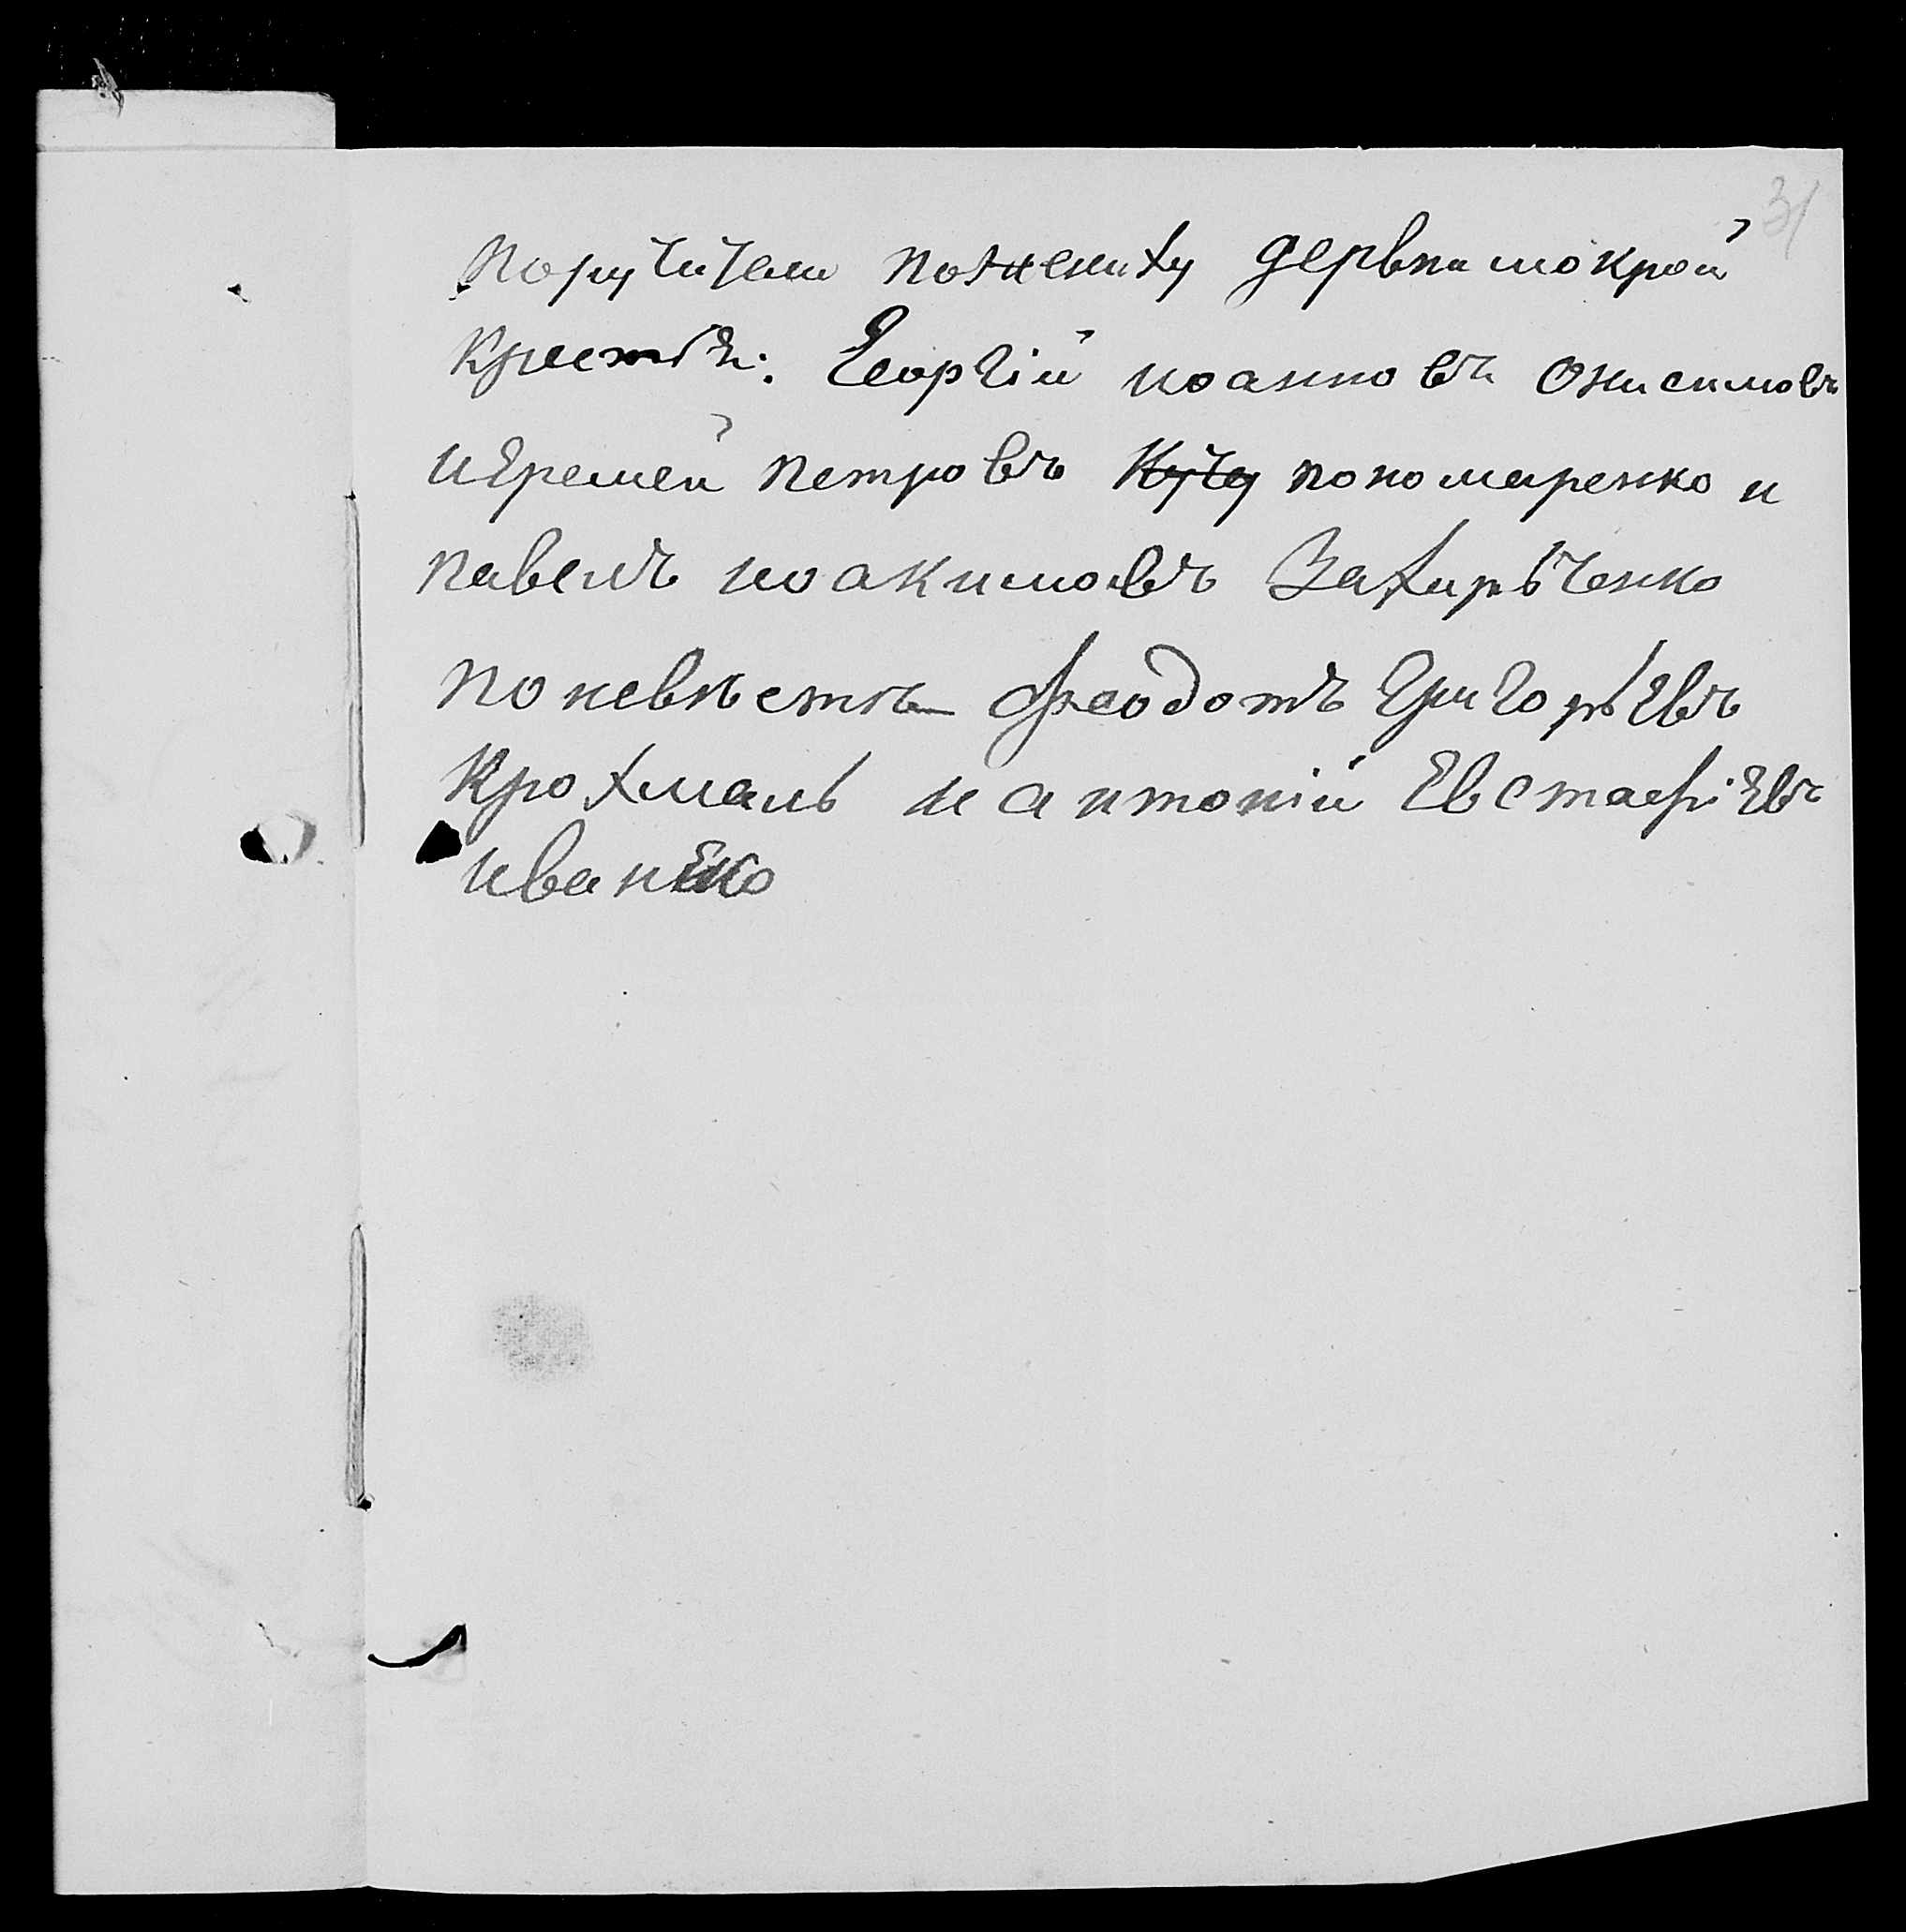 31
поручители пожениху дервни мокрой
Крестья: Георгій иоанновъ Онисимовъ
иЕремей петровъ Кучу пономаренко и
павелъ иоакимовъ Захирьченко
поневѣстѣ Феодотъ Григорьевъ
Крохмаль и антоній Евстафіевъ
иваненко